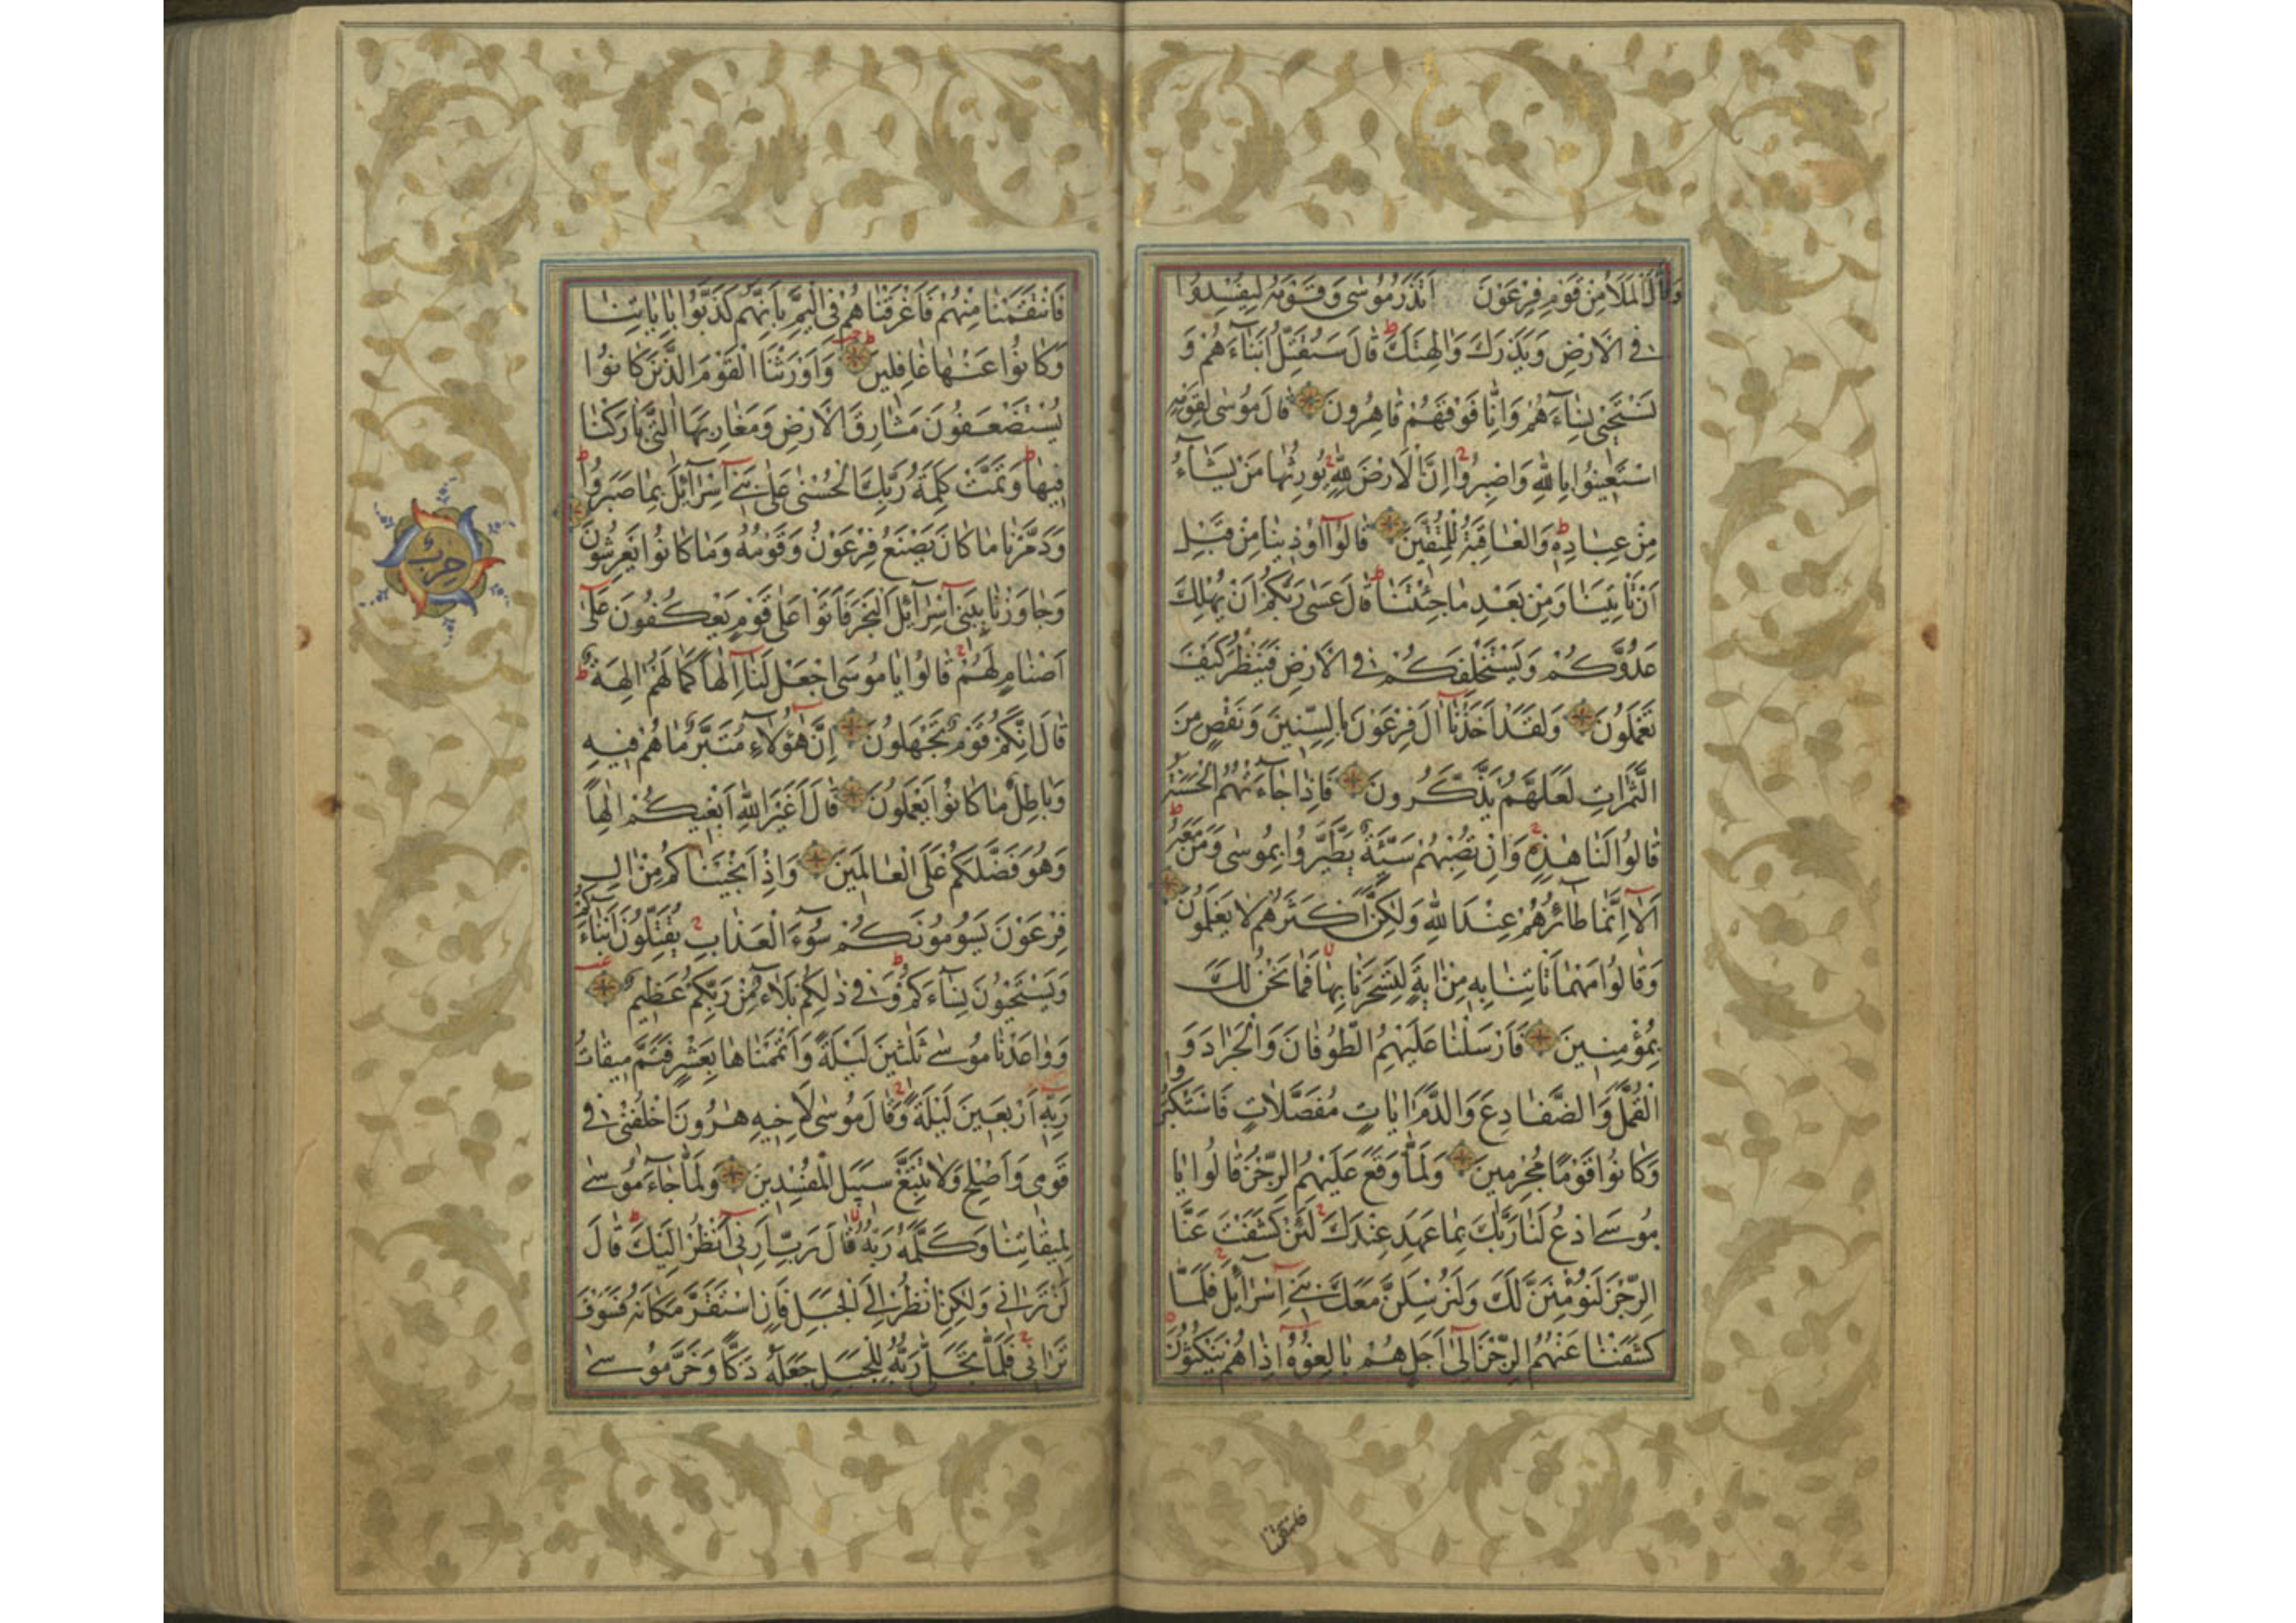 وَقَالَ الْمَلَأُ مِنْ قَوْمِ فِرْعَوْنَ اَتَذَرُ مُوسٰى وَقَوْمَهُ لِيُفْسِدُوا
فِي الْاَرْضِ وَيَذَرَكَ وَاٰلِهَتَكَ قَالَ سَنُقَتِّلُ اَبْنَآءَهُمْ وَ
نَسْتَحْيٖى نِسَآءَهُمْ وَاِنَّا فَوْقَهُمْ قَاهِرُونَ قَالَ مُوسٰى لِقَوْمِهِ
اسْتَعٖينُوا بِاللّٰهِ وَاصْبِرُوا اِنَّ الْاَرْضَ لِلّٰهِ يُورِثُهَا مَنْ يَشَآءُ
مِنْ عِبَادِهٖ وَالْعَاقِبَةُ لِلْمُتَّقٖينَ قَالُوٓا اُوذٖينَا مِنْ قَبْلِ
اَنْ تَاْتِيَنَا وَمِنْ بَعْدِ مَا جِئْتَنَا قَالَ عَسٰى رَبُّكُمْ اَنْ يُهْلِكَ
عَدُوَّكُمْ وَيَسْتَخْلِفَكُمْ فِي الْاَرْضِ فَيَنْظُرَ كَيْفَ
تَعْمَلُونَ وَلَقَدْ اَخَذْنَآ اٰلَ فِرْعَوْنَ بِالسِّنٖينَ وَنَقْصٍ مِنَ
الثَّمَرَاتِ لَعَلَّهُمْ يَذَّكَّرُونَ فَاِذَا جَآءَتْهُمُ الْحَسَنَةُ
قَالُوا لَنَا هٰذِهٖ وَاِنْ تُصِبْهُمْ سَيِّئَةٌ يَطَّيَّرُوا بِمُوسٰى وَمَنْ مَعَهُ
اَلَآ اِنَّمَا طَآئِرُهُمْ عِنْدَ اللّٰهِ وَلٰكِنَّ اَكْثَرَهُمْ لَا يَعْلَمُونَ
وَقَالُوا مَهْمَا تَاْتِنَا بِهٖ مِنْ اٰيَةٍ لِتَسْحَرَنَا بِهَا فَمَا نَحْنُ لَكَ
بِمُؤْمِنٖينَ فَاَرْسَلْنَا عَلَيْهِمُ الطُّوفَانَ وَالْجَرَادَ وَ
الْقُمَّلَ وَالضَّفَادِعَ وَالدَّمَ اٰيَاتٍ مُفَصَّلَاتٍ فَاسْتَكْبَرُوا
وَكَانُوا قَوْمًا مُجْرِمٖينَ وَلَمَّا وَقَعَ عَلَيْهِمُ الرِّجْزُ قَالُوا يَا
مُوسَى ادْعُ لَنَا رَبَّكَ بِمَا عَهِدَ عِنْدَكَ لَئِنْ كَشَفْتَ عَنَّا
الرِّجْزَ لَنُؤْمِنَنَّ لَكَ وَلَنُرْسِلَنَّ مَعَكَ بَنٖٓى اِسْرَآئٖلَ فَلَمَّا
كَشَفْنَا عَنْهُمُ الرِّجْزَ اِلٰٓى اَجَلٍ هُمْ بَالِغُوهُ اِذَا هُمْ يَنْكُثُونَ
فانتقمنا
فَانْتَقَمْنَا مِنْهُمْ فَاَغْرَقْنَاهُمْ فِي الْيَمِّ بِاَنَّهُمْ كَذَّبُوا بِاٰيَاتِنَا
وَكَانُوا عَنْهَا غَافِلٖينَ وَاَوْرَثْنَا الْقَوْمَ الَّذٖينَ كَانُوا
يُسْتَضْعَفُونَ مَشَارِقَ الْاَرْضِ وَمَغَارِبَهَا الَّتٖى بَارَكْنَا
فٖيهَا وَتَمَّتْ كَلِمَةُ رَبِّكَ الْحُسْنٰى عَلٰى بَنٖٓى اِسْرَآئٖلَ بِمَا صَبَرُوا
وَدَمَّرْنَا مَا كَانَ يَصْنَعُ فِرْعَوْنُ وَقَوْمُهُ وَمَا كَانُوا يَعْرِشُونَ
وَجَاوَزْنَا بِبَنٖٓى اِسْرَآئٖلَ الْبَحْرَ فَاَتَوْا عَلٰى قَوْمٍ يَعْكُفُونَ عَلٰٓى
اَصْنَامٍ لَهُمْ قَالُوا يَا مُوسَى اجْعَلْ لَنَآ اِلٰهًا كَمَا لَهُمْ اٰلِهَةٌ
قَالَ اِنَّكُمْ قَوْمٌ تَجْهَلُونَ اِنَّ هٰٓؤُلَآءِ مُتَبَّرٌ مَا هُمْ فٖيهِ
وَبَاطِلٌ مَا كَانُوا يَعْمَلُونَ قَالَ اَغَيْرَ اللّٰهِ اَبْغٖيكُمْ اِلٰهًا
وَهُوَ فَضَّلَكُمْ عَلَى الْعَالَمٖينَ وَاِذْ اَنْجَيْنَاكُمْ مِنْ اٰلِ
فِرْعَوْنَ يَسُومُونَكُمْ سُوٓءَ الْعَذَابِ يُقَتِّلُونَ اَبْنَآءَكُمْ
وَيَسْتَحْيُونَ نِسَآءَكُمْ وَفٖى ذٰلِكُمْ بَلَآءٌ مِنْ رَبِّكُمْ عَظٖيمٌ
وَوَاعَدْنَا مُوسٰى ثَلٰثٖينَ لَيْلَةً وَاَتْمَمْنَاهَا بِعَشْرٍ فَتَمَّ مٖيقَاتُ
رَبِّهٖٓ اَرْبَعٖينَ لَيْلَةً وَقَالَ مُوسٰى لِاَخٖيهِ هٰرُونَ اخْلُفْنٖى فٖى
قَوْمٖى وَاَصْلِحْ وَلَا تَتَّبِعْ سَبٖيلَ الْمُفْسِدٖينَ وَلَمَّا جَآءَ مُوسٰى
لِمٖيقَاتِنَا وَكَلَّمَهُ رَبُّهُ قَالَ رَبِّ اَرِنٖٓى اَنْظُرْ اِلَيْكَ قَالَ
لَنْ تَرَانٖى وَلٰكِنِ انْظُرْ اِلَى الْجَبَلِ فَاِنِ اسْتَقَرَّ مَكَانَهُ فَسَوْفَ
تَرَانٖى فَلَمَّا تَجَلّٰى رَبُّهُ لِلْجَبَلِ جَعَلَهُ دَكًّا وَخَرَّ مُوسٰى
حزب